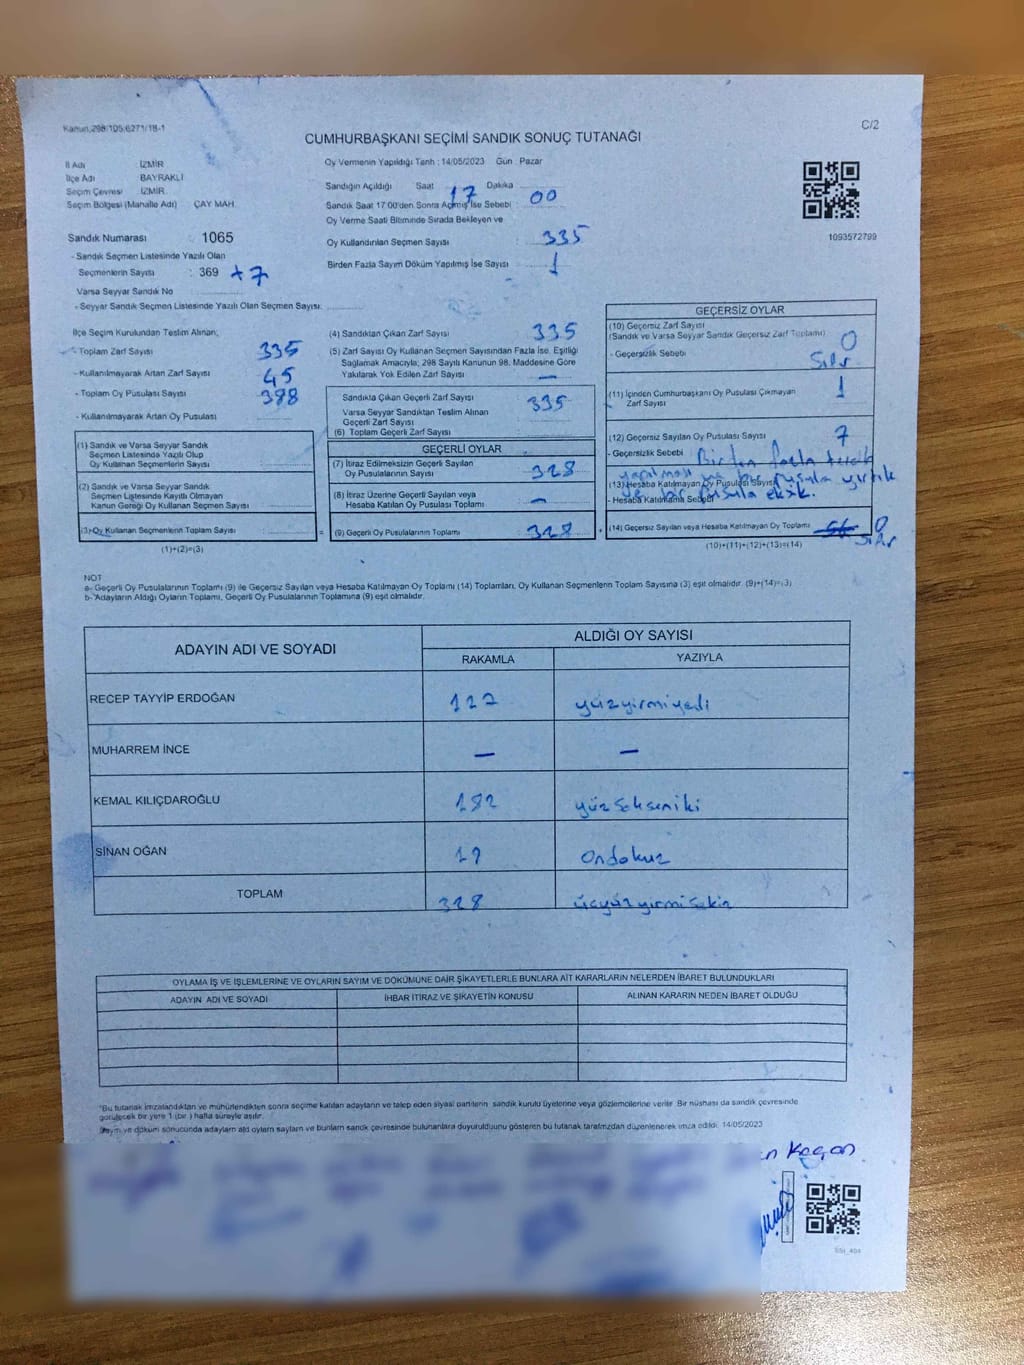 Kanun:298/105;6271/18-1
C/2
CUMHURBAŞKANI SEÇİMİ SANDIK SONUÇ TUTANAĞI
İl Adı : İZMİR
İlçe Adı : BAYRAKLI
Seçim Çevresi : İZMİR
Seçim Bölgesi (Mahalle Adı) : ÇAY MAH.
Oy Vermenin Yapıldığı Tarih : 14/05/2023 Gün : Pazar
Sandığın Açıldığı Saat 17 Dakika 00
Sandık Saat 17:00'den Sonra Açılmış İse Sebebi :
Oy Verme Saati Bitiminde Sırada Bekleyen ve
Oy Kullandırılan Seçmen Sayısı : 335
Birden Fazla Sayım Döküm Yapılmış İse Sayısı : 1
1093572799
Sandık Numarası : 1065
- Sandık Seçmen Listesinde Yazılı Olan
Seçmenlerin Sayısı : 369 +7
Varsa Seyyar Sandık No
- Seyyar Sandık Seçmen Listesinde Yazılı Olan Seçmen Sayısı:
İlçe Seçim Kurulundan Teslim Alınan;
- Toplam Zarf Sayısı : 335
- Kullanılmayarak Artan Zarf Sayısı : 45
- Toplam Oy Pusulası Sayısı :
- Kullanılmayarak Artan Oy Pusulası :
(1) Sandık ve Varsa Seyyar Sandık
Seçmen Listesinde Yazılı Olup
Oy Kullanan Seçmenlerin Sayısı
(2) Sandık ve Varsa Seyyar Sandık
Seçmen Listesinde Kayıtlı Olmayan
Kanun Gereği Oy Kullanan Seçmen Sayısı
(3) Oy Kullanan Seçmenlerin Toplam Sayısı
(1)+(2)=(3)
(4) Sandıktan Çıkan Zarf Sayısı : 335
(5) Zarf Sayısı Oy Kullanan Seçmen Sayısından Fazla İse, Eşitliği
Sağlamak Amacıyla; 298 Sayılı Kanunun 98. Maddesine Göre
Yakılarak Yok Edilen Zarf Sayısı : —
Sandıkta Çıkan Geçerli Zarf Sayısı : 335
Varsa Seyyar Sandıktan Teslim Alınan
Geçerli Zarf Sayısı
(6) Toplam Geçerli Zarf Sayısı
GEÇERLİ OYLAR
(7) İtiraz Edilmeksizin Geçerli Sayılan
Oy Pusulalarının Sayısı : 328
(8) İtiraz Üzerine Geçerli Sayılan veya
Hesaba Katılan Oy Pusulası Toplamı : —
= (9) Geçerli Oy Pusulalarının Toplamı : 328
GEÇERSİZ OYLAR
(10) Geçersiz Zarf Sayısı
(Sandık ve Varsa Seyyar Sandık Geçersiz Zarf Toplamı) : 0
- Geçersizlik Sebebi : Sıfır
(11) İçinden Cumhurbaşkanı Oy Pusulası Çıkmayan
Zarf Sayısı : 1
(12) Geçersiz Sayılan Oy Pusulası Sayısı : 7
- Geçersizlik Sebebi : Birden fazla tercih
yapılması ve bir pusula yırtık
(13) Hesaba Katılmayan Oy Pusulası Sayısı
ve bir pusula eksik.
- Hesaba Katılmama Sebebi
+ (14) Geçersiz Sayılan veya Hesaba Katılmayan Oy Toplamı : 0
Sıfır
(10)+(11)+(12)+(13)=(14)
NOT
a- Geçerli Oy Pusulalarının Toplamı (9) ile Geçersiz Sayılan veya Hesaba Katılmayan Oy Toplamı (14) Toplamları, Oy Kullanan Seçmenlerin Toplam Sayısına (3) eşit olmalıdır. (9)+(14)=(3)
b- Adayların Aldığı Oyların Toplamı, Geçerli Oy Pusulalarının Toplamına (9) eşit olmalıdır.
ADAYIN ADI VE SOYADI
ALDIĞI OY SAYISI
RAKAMLA YAZIYLA
RECEP TAYYİP ERDOĞAN 127 yüzyirmiyedi
MUHARREM İNCE — —
KEMAL KILIÇDAROĞLU 182 yüzsekseniki
SİNAN OĞAN 19 ondokuz
TOPLAM 328 üçyüzyirmisekiz
OYLAMA İŞ VE İŞLEMLERİNE VE OYLARIN SAYIM VE DÖKÜMÜNE DAİR ŞİKAYETLERLE BUNLARA AİT KARARLARIN NELERDEN İBARET BULUNDUKLARI
ADAYIN ADI VE SOYADI İHBAR İTİRAZ VE ŞİKAYETİN KONUSU ALINAN KARARIN NEDEN İBARET OLDUĞU
*Bu tutanak imzalandıktan ve mühürlendikten sonra seçime katılan adayların ve talep eden siyasi partilerin sandık kurulu üyelerine veya gözlemcilerine verilir. Bir nüshası da sandık çevresinde
görülecek bir yere 1 (bir) hafta süreyle asılır.
Sayım ve döküm sonucunda adayların aldığı oyların sayıları ve bunların sandık çevresinde bulunanlara duyurulduğunu gösteren bu tutanak tarafımızdan düzenlenerek imza edildi. 14/05/2023